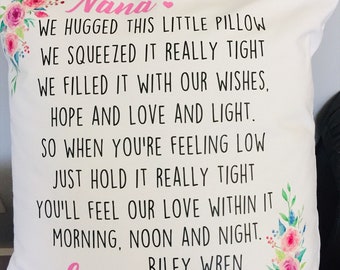 Nana
WE HUGGED THIS LITTLE PILLOW
WE SQUEEZED IT REALLY TIGHT
WE FILLED IT WITH OUR WISHES,
HOPE AND LOVE AND LIGHT.
SO WHEN YOU'RE FEELING LOW
JUST HOLD IT REALLY TIGHT
YOU'LL FEEL OUR LOVE WITHIN IT
MORNING, NOON AND NIGHT.
RILEY, WREN